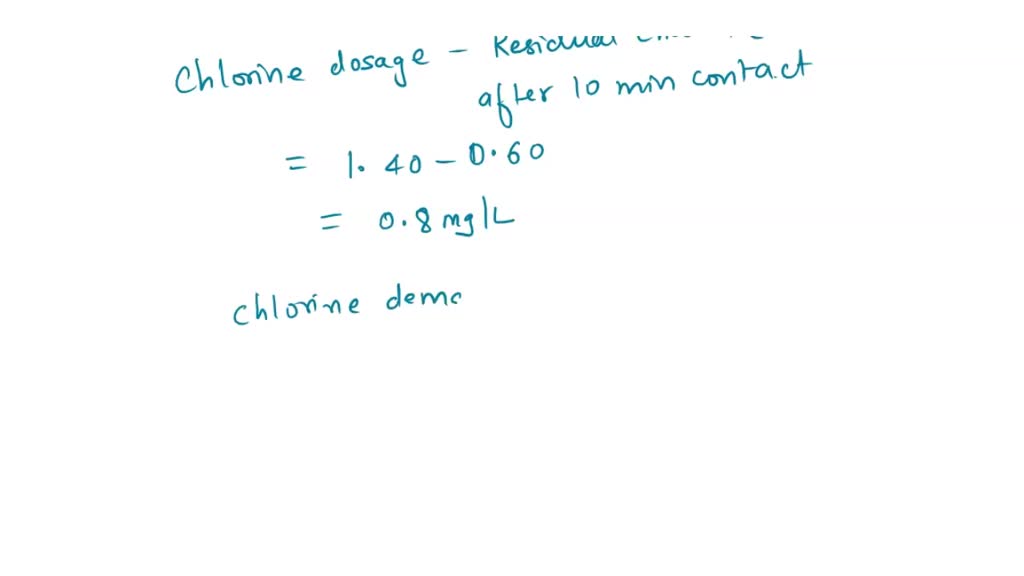 Chlorine dosage – Residual
after 10 min contact
= 1.40 – 0.60
= 0.8 mg/L
chlorine demo